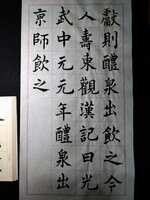 獻則醴泉出飲之令
人壽東觀漢記曰光
武中元元年醴泉出
京師飲之